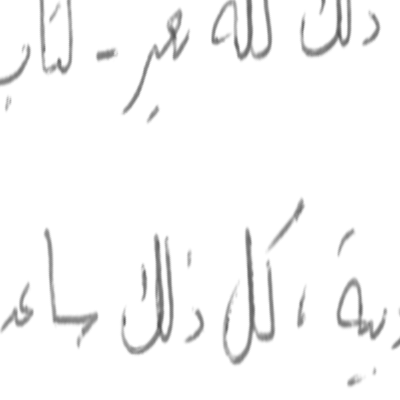 ذلك كله عبر - كتاب
دبية ، كل ذلك ساعد